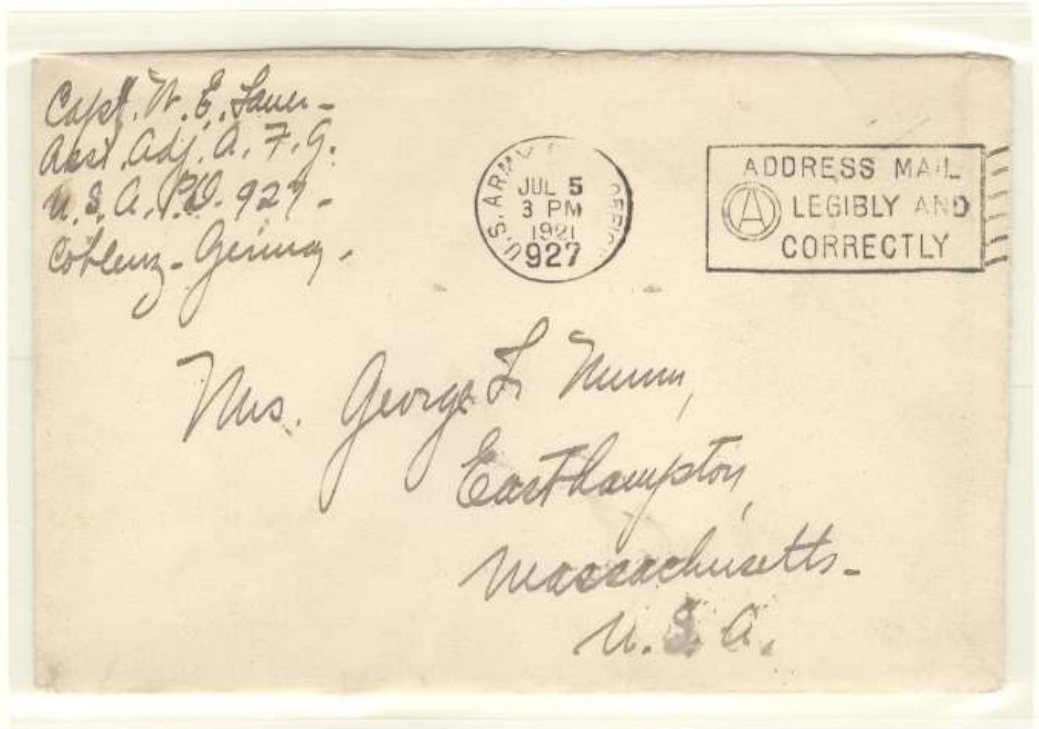 Capt. W. E. Lauer -
Asst. Adj. A. F. G.
U. S. A. P.O. 927 -
Coblenz - Germany.
U.S. ARMY OFFICE
JUL 5
3 PM
1921
927
ADDRESS MAIL
A LEGIBLY AND
CORRECTLY
Mrs. George L. Munn,
Easthampton,
Massachusetts -
U. S. A.